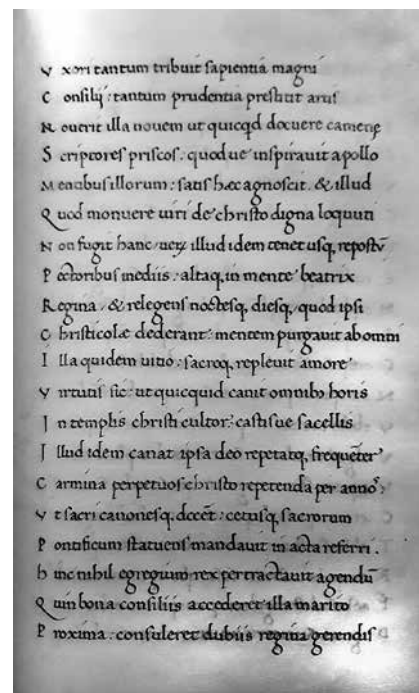 V xori tantum tribuit sapientia magni
C onsilij : tantum prudentia prestitit artis
N ouerit illa nouem ut quicqd docuere camenę
S criptores priscos . quod ue inspirauit apollo
M entibus illorum : satis hæc agnoscit . & illud
Q uod monuere uiri de christo digna loquuti
N on fugit hanc . uerū illud idem tenet usq, repostū
P ectoribus mediis : altaq, in mente beatrix
R egina . & relegens noctesq, diesq, quod ipsi
C hristicolæ dederant : mentem purgauit ab omni
I lla quidem uitio : sacroq, repleuit amore
V irtutis sic : ut quicquid canit omnibꝰ horis
I n templis christi cultor : castisue sacellis
I llud idem canat ipsa deo repetatq, frequēter
C armina perpetuos christo repetenda per annoꝭ :
V t sacri canonesq, docēt : cetusq, sacrorum
P ontificum statuens mandauit in acta referri .
h inc nihil egregium rex pertractauit agendū
Q uin bona consiliis accederet illa marito
P roxima : consuleret dubiis regina gerendis